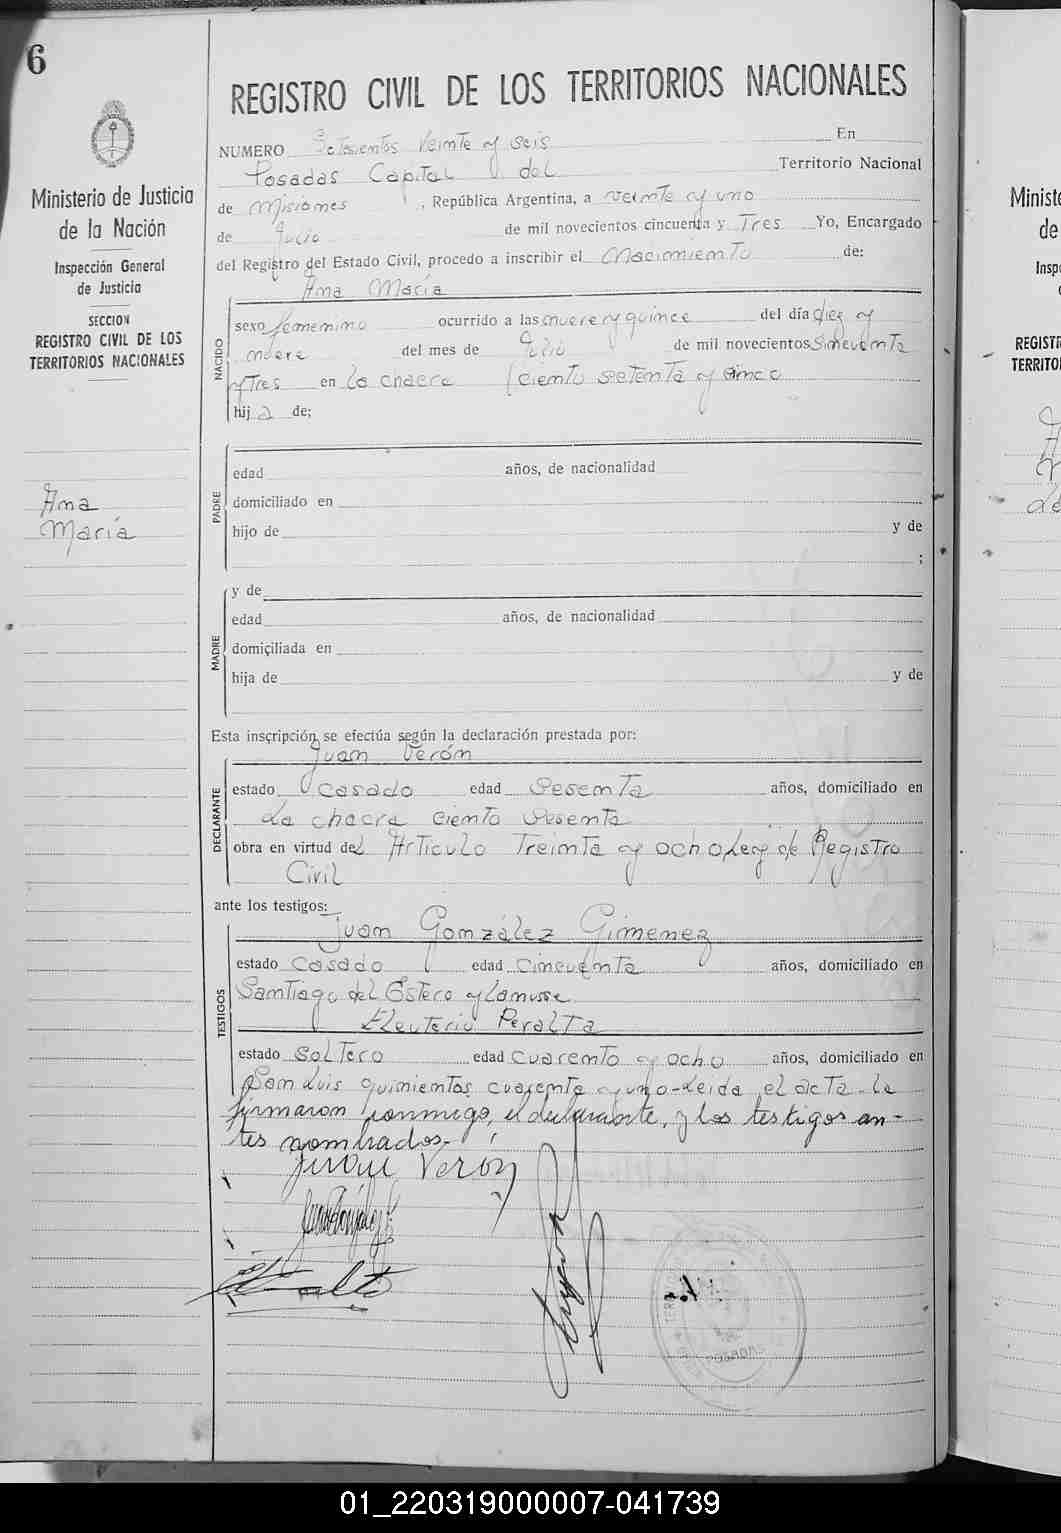 6
Ministerio de Justicia
de la Nación
Inspección General
de Justicia
SECCION
REGISTRO CIVIL DE LOS
TERRITORIOS NACIONALES
Ana
María
REGISTRO CIVIL DE LOS TERRITORIOS NACIONALES
NUMERO Setesientos Veinte y seis En
Posadas Capital del Territorio Nacional
de Misiones, República Argentina, a veinte y uno
de Julio de mil novecientos cincuenta y Tres Yo, Encargado
del Registro del Estado Civil, procedo a inscribir el Nacimiento de:
Ana María
NACIDO
sexo femenino ocurrido a las nueve y quince del día diez y
nueve del mes de Julio de mil novecientos sincuenta
y Tres en La chacra ciento setenta y cinco
hija de;
PADRE
edad años, de nacionalidad
domiciliado en
hijo de y de
;
MADRE
y de
edad años, de nacionalidad
domiciliada en
hija de y de
Esta inscripción se efectúa según la declaración prestada por:
Juan Verón
DECLARANTE
estado casado edad Sesenta años, domiciliado en
La chacra ciento sesenta
obra en virtud del Articulo Treinta y ocho Ley de Registro
Civil
ante los testigos:
Juan González Gimenez
TESTIGOS
estado casado edad cincuenta años, domiciliado en
Santiago del Estero y Lanusse
Eleuterio Peralta
estado solTero edad cuarenta y ocho años, domiciliado en
San Luis quinientos cuarenta y uno-Leida el acta-la
firmaron conmigo, el declarante, y los testigos an-
tes nombrados.-
Juan Verón
Ministe
de
Insp
REGISTR
TERRITO
01_220319000007-041739